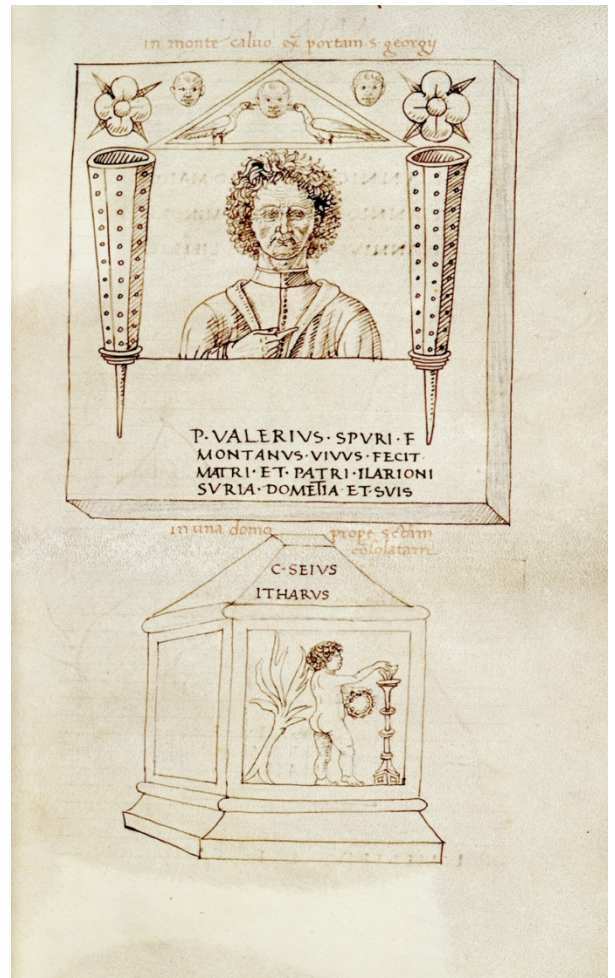 in monte caluo ex̄ portam s. georgy
P · VALERIVS · SPVRI · F
MONTANVS · VIVVS · FECIT ·
MATRI · ET · PATRI · ILARIONI
SVRIA · DOMETIA · ET · SVIS
in una domo prope sctam
C · SEIVS
ITHARVS